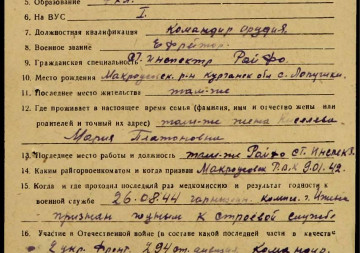 5. Образование
6. На ВУС I.
7. Должностная квалификация Командир орудия.
8. Военное звание Ефрейтор.
9. Гражданская специальность Инспектор РайФо.
10. Место рождения р-н Курганск обл с.
11. Последнее место жительства там-же
12. Где проживает в настоящее время семья (фамилия, имя и отчество жены или
родителей и точный их адрес) там-же жена Киселева
Мария Платоновна
13. Последнее место работы и должность там-же РайФо ст. Инспек
14. Каким райгорвоенкоматом и когда призван 9.01.42.
15. Когда и где проходил последний раз медкомиссию и результат годности к
военной службе 26.08.44
признан годным к строевой службе
16. Участие в Отечественной войне (в составе какой последней части в качеств
2 укр. Фронт. 294